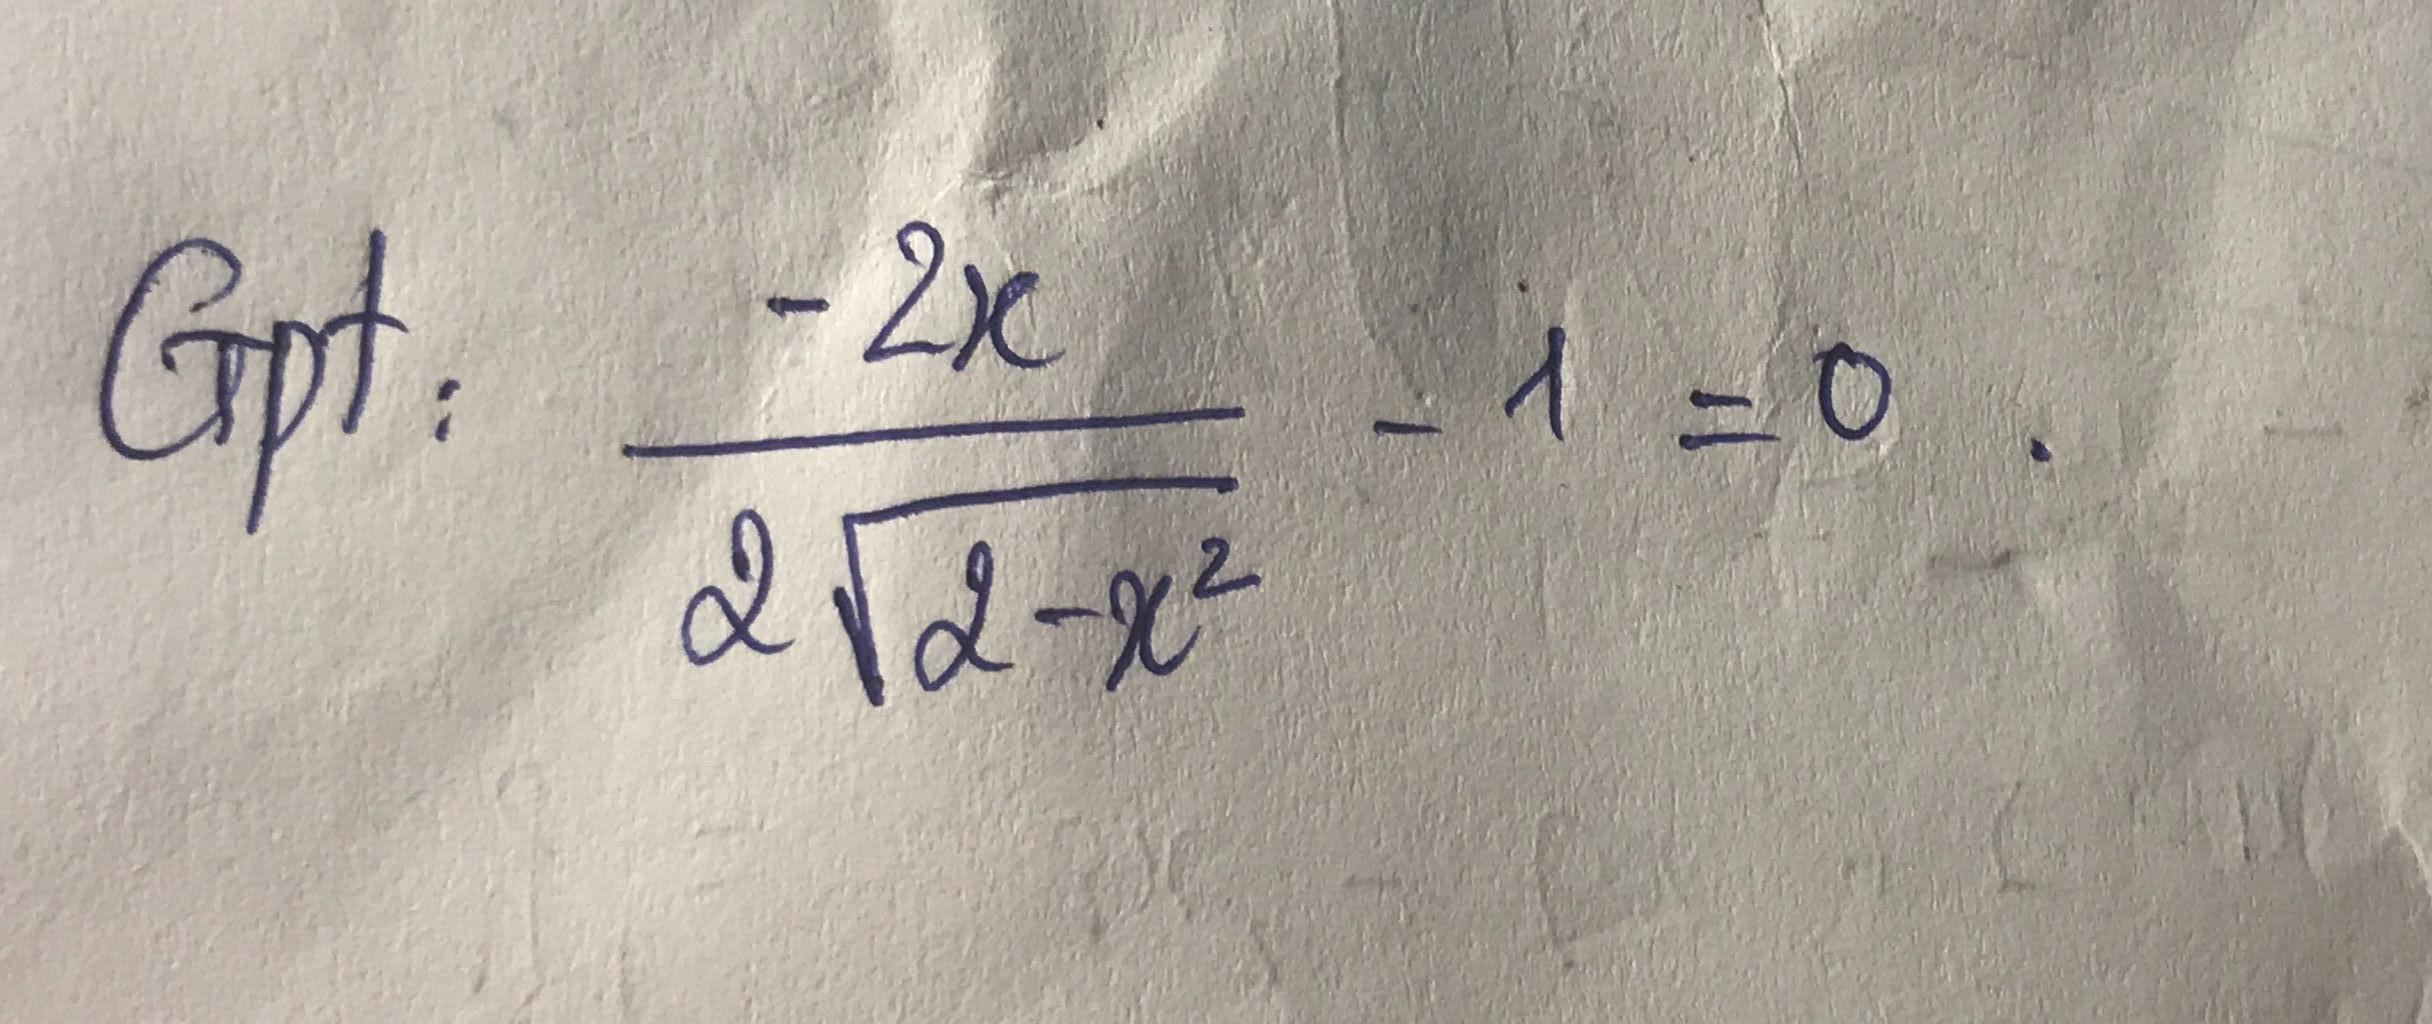 Gpt: \frac{-2x}{2\sqrt{2-x^2}} - 1 = 0.